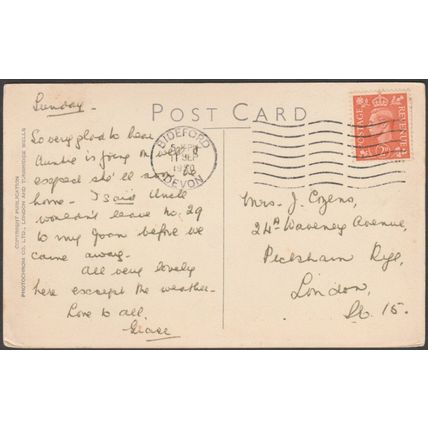 Sunday -
POST CARD
BIDEFORD
DEVON
11 SEP
POSTAGE
REVENUE
So very glad to hear
Auntie is
expect she'll soon be
home - I said Uncle
wouldn't leave no. 29
to my Joan before we
came away.
All very lovely
here except the weather -
Love to all,
Grace
Mrs. J. Cozens,
24A Waveney Avenue,
Peckham Rye,
London,
S.E. 15.
COPYRIGHT PUBLICATION
PHOTOCHROM CO. LTD., LONDON AND TUNBRIDGE WELLS